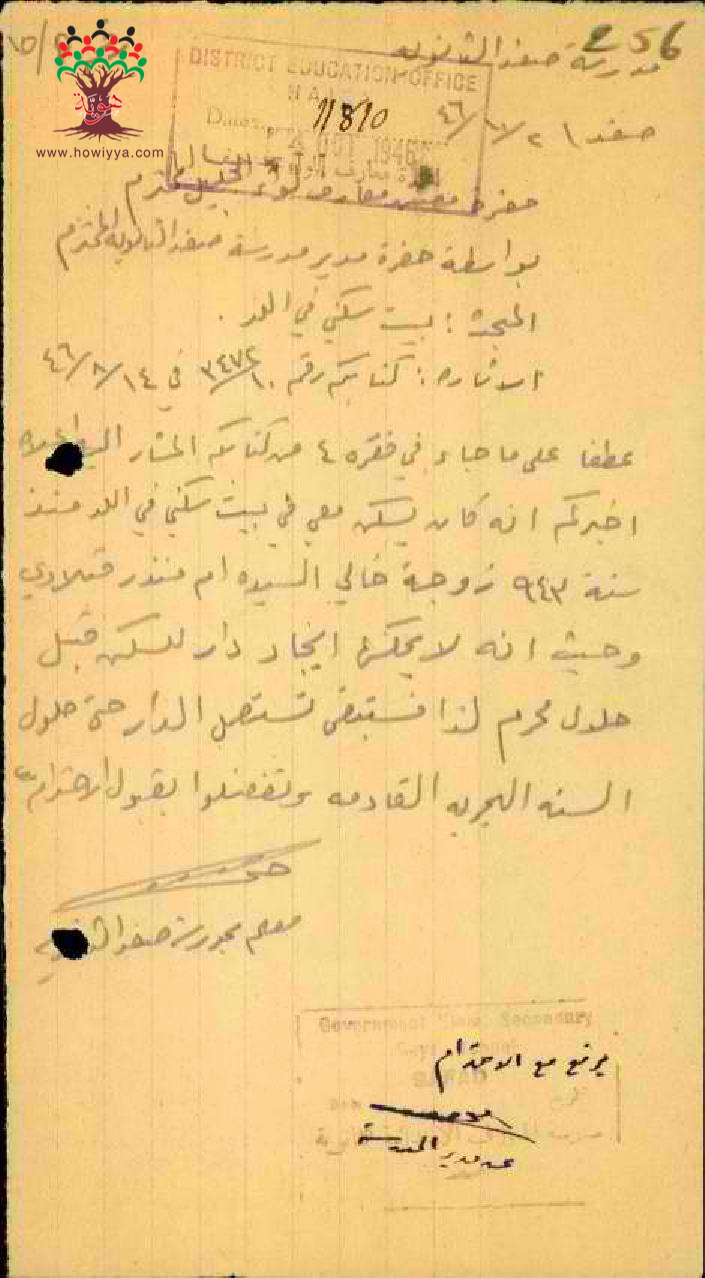 256
مدرسة صفد الثانويه
DISTRICT EDUCATION OFFICE
11810
OCT 1946
هوية
www.howiyya.com
صفد
حضرة معارف لواء الجليل المحترم
بواسطة حضرة مدير مدرسة صفد الثانويه المحترم
المبحث : بيت سكني في اللد .
الاشاره : كتابكم رقم ١٠/٣٤٧٢ في ٤٦/٨/١٤
عطفا على ما جاء في فقره ٤ من كتابكم المشار اليه اعلاه
اخبركم انه كان يسكن معي في بيت سكني في اللد منذ
سنة ٩٤٣ زوجة خالي السيده ام منذر
وحيث انه لا يمكنها ايجاد دار للسكن قبل
حلول محرم لذا فستبقى تستعمل الدار حتى حلول
السنه الهجريه القادمه وتفضلوا بقبول الاحترام
معلم بمدرسة صفد الثانويه
Government Secondary
SAFAD
يرفع مع الاحترام
عن مدير المدرسة